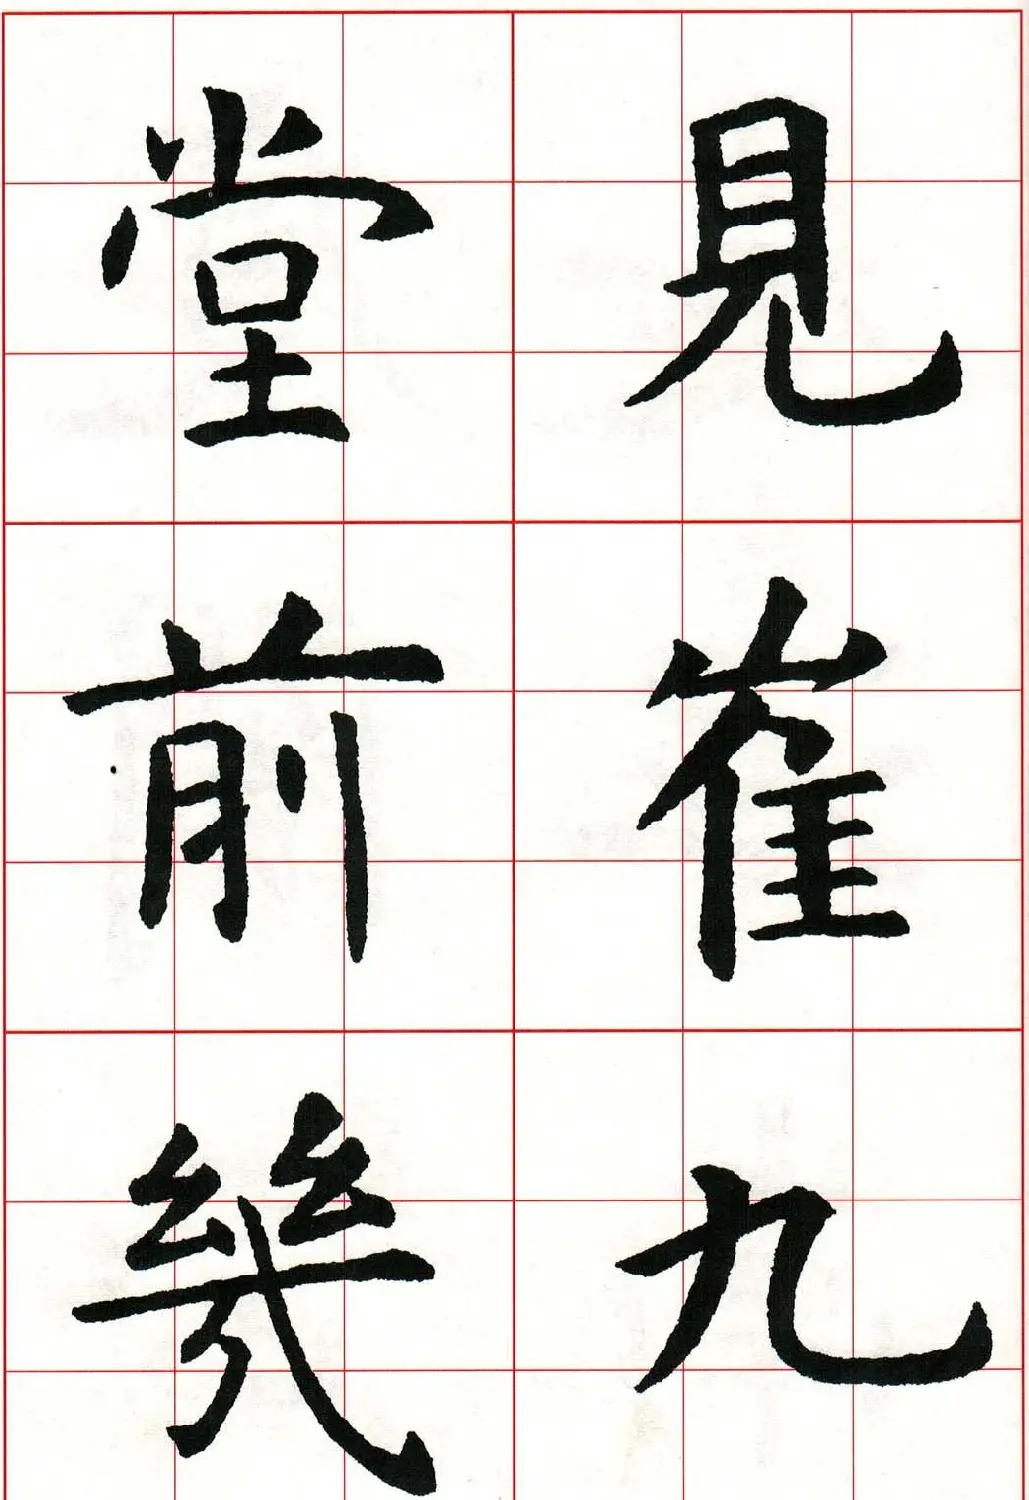 見崔九
堂前幾